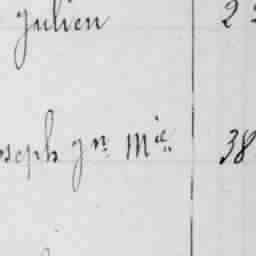 Julien 2
oseph Jn Mie 38